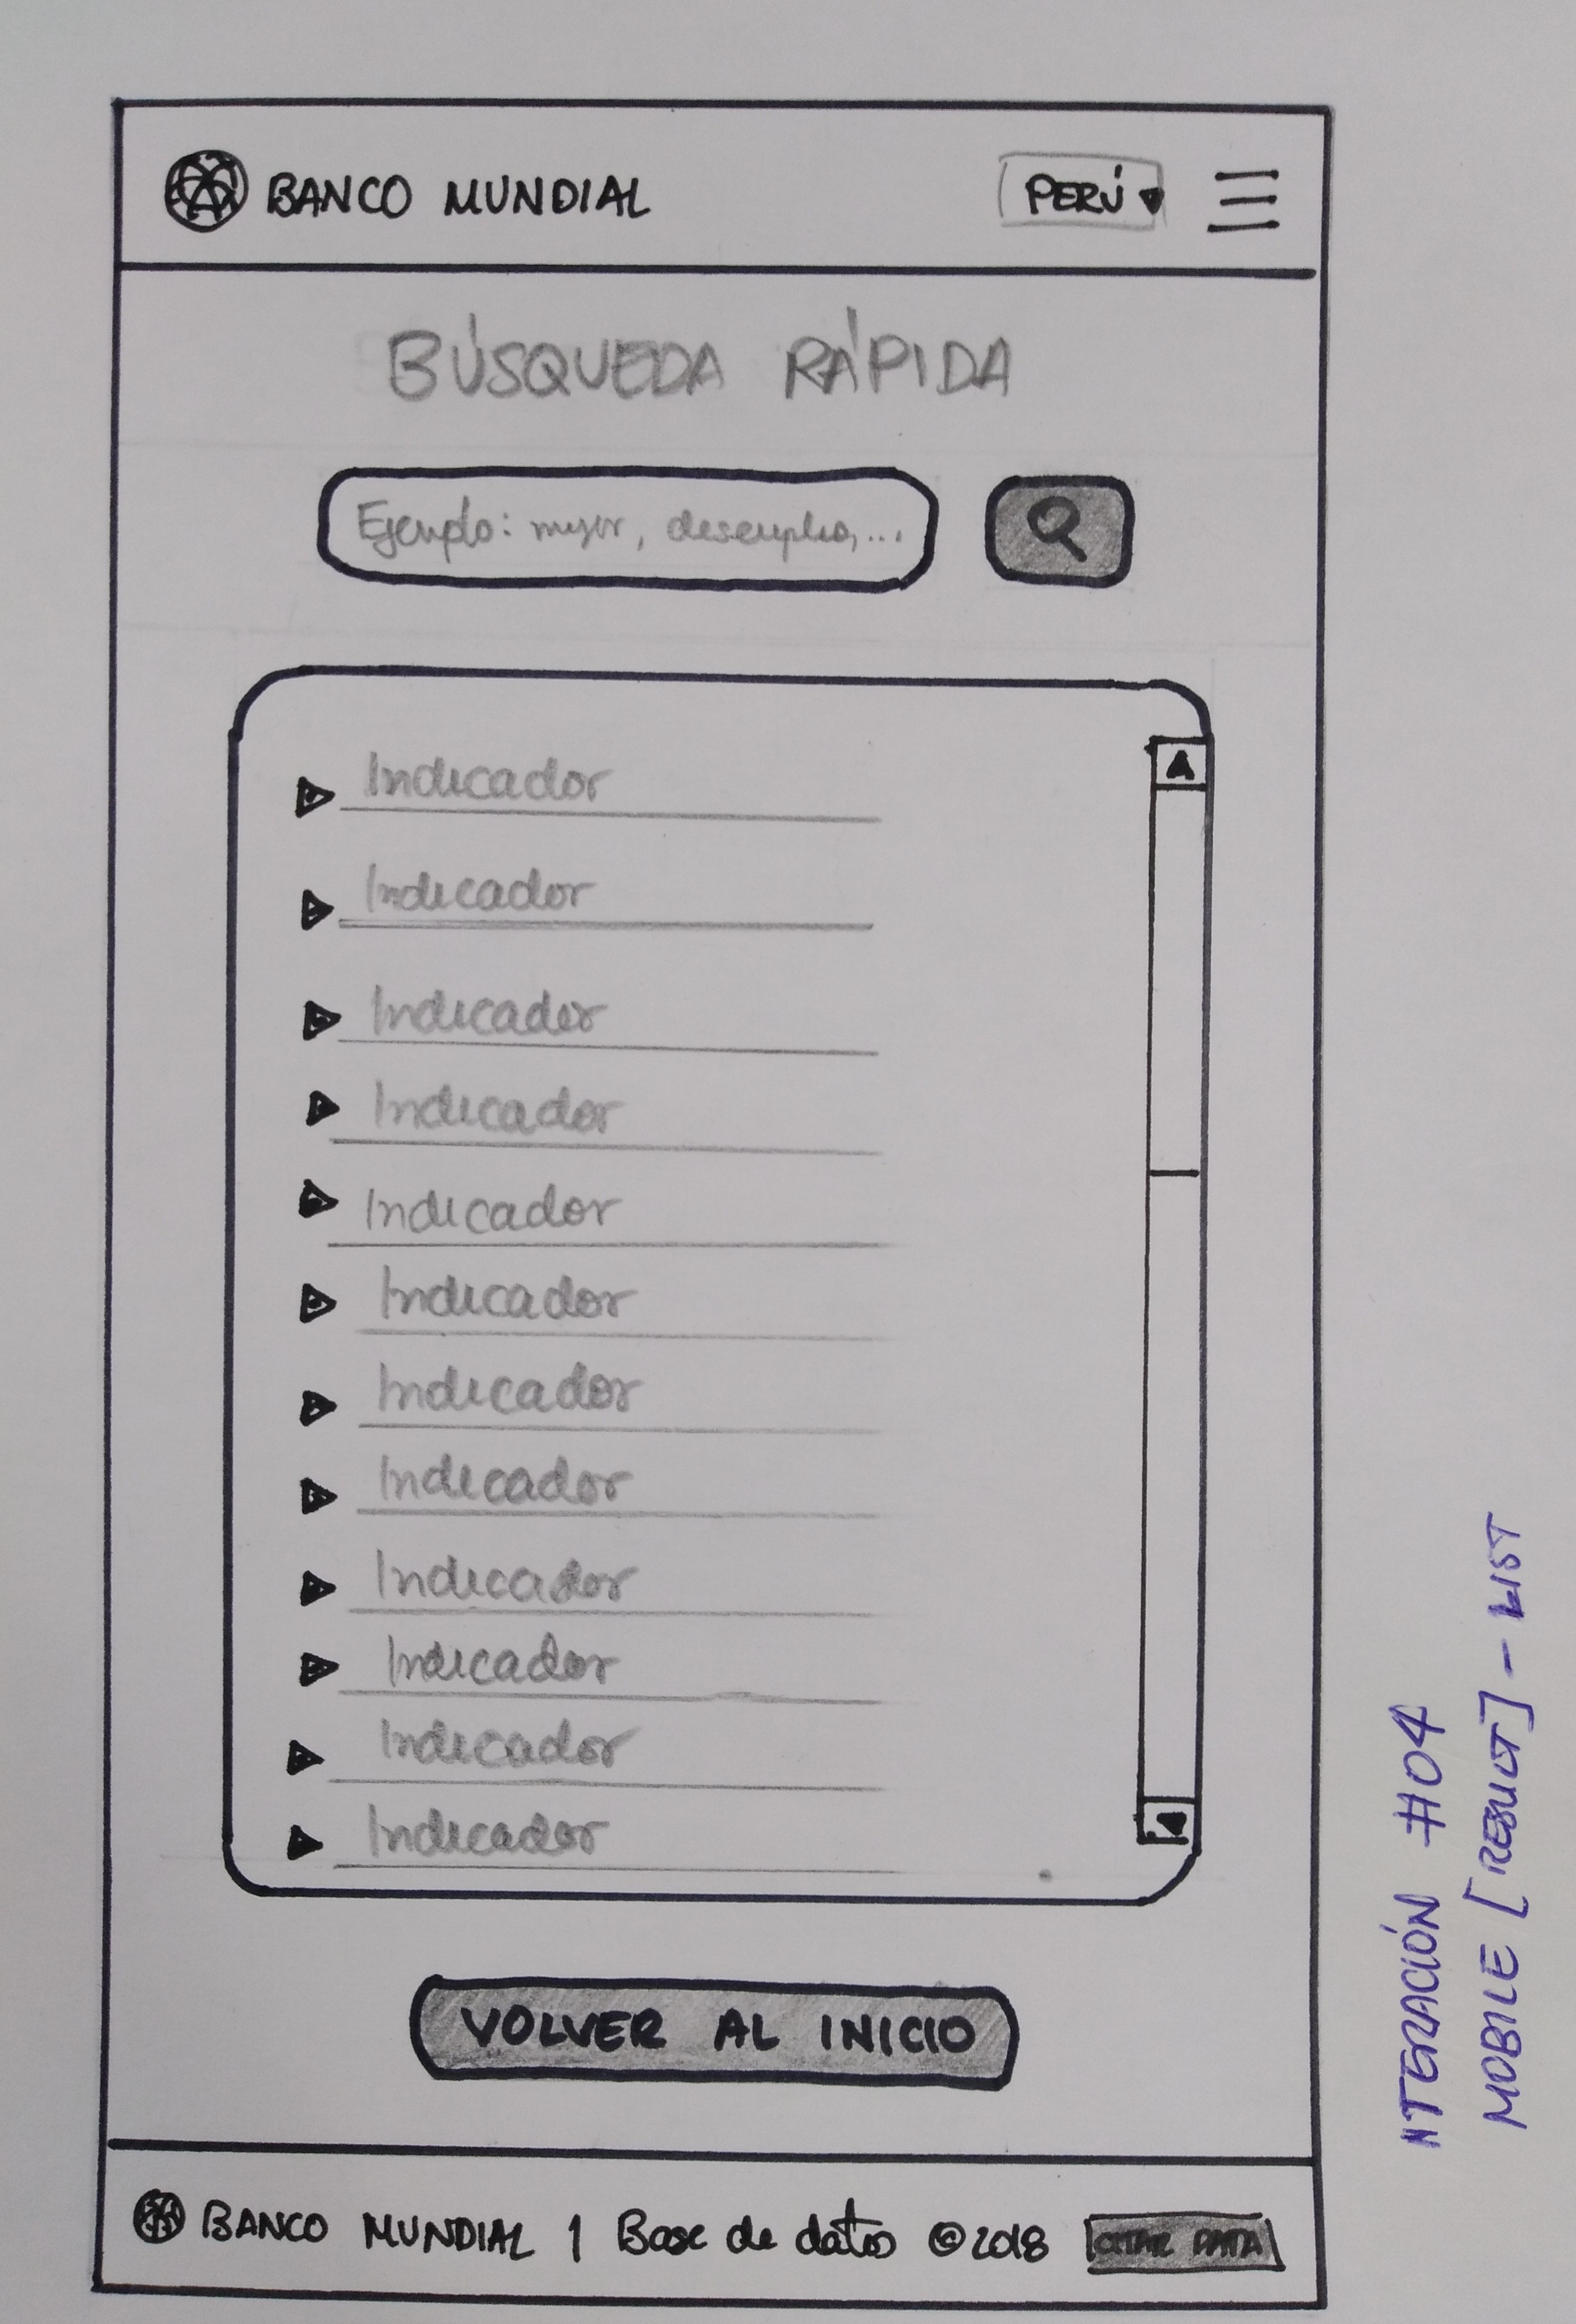 BANCO MUNDIAL
PERÚ
BÚSQUEDA RÁPIDA
Ejemplo: mujer, desempleo,...
Indicador
Indicador
Indicador
Indicador
Indicador
Indicador
Indicador
Indicador
Indicador
Indicador
Indicador
Indicador
VOLVER AL INICIO
BANCO MUNDIAL | Base de datos ©2018
CITAR DATA
INTERACIÓN #04
MOBILE [RESULT] - LIST